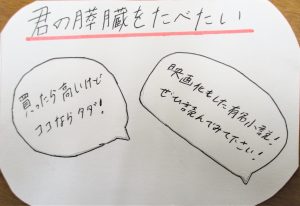 君の膵臓をたべたい
買ったら高いけど
ココならタダ!
映画化をした有名小説!
ぜひ読んでみてください!